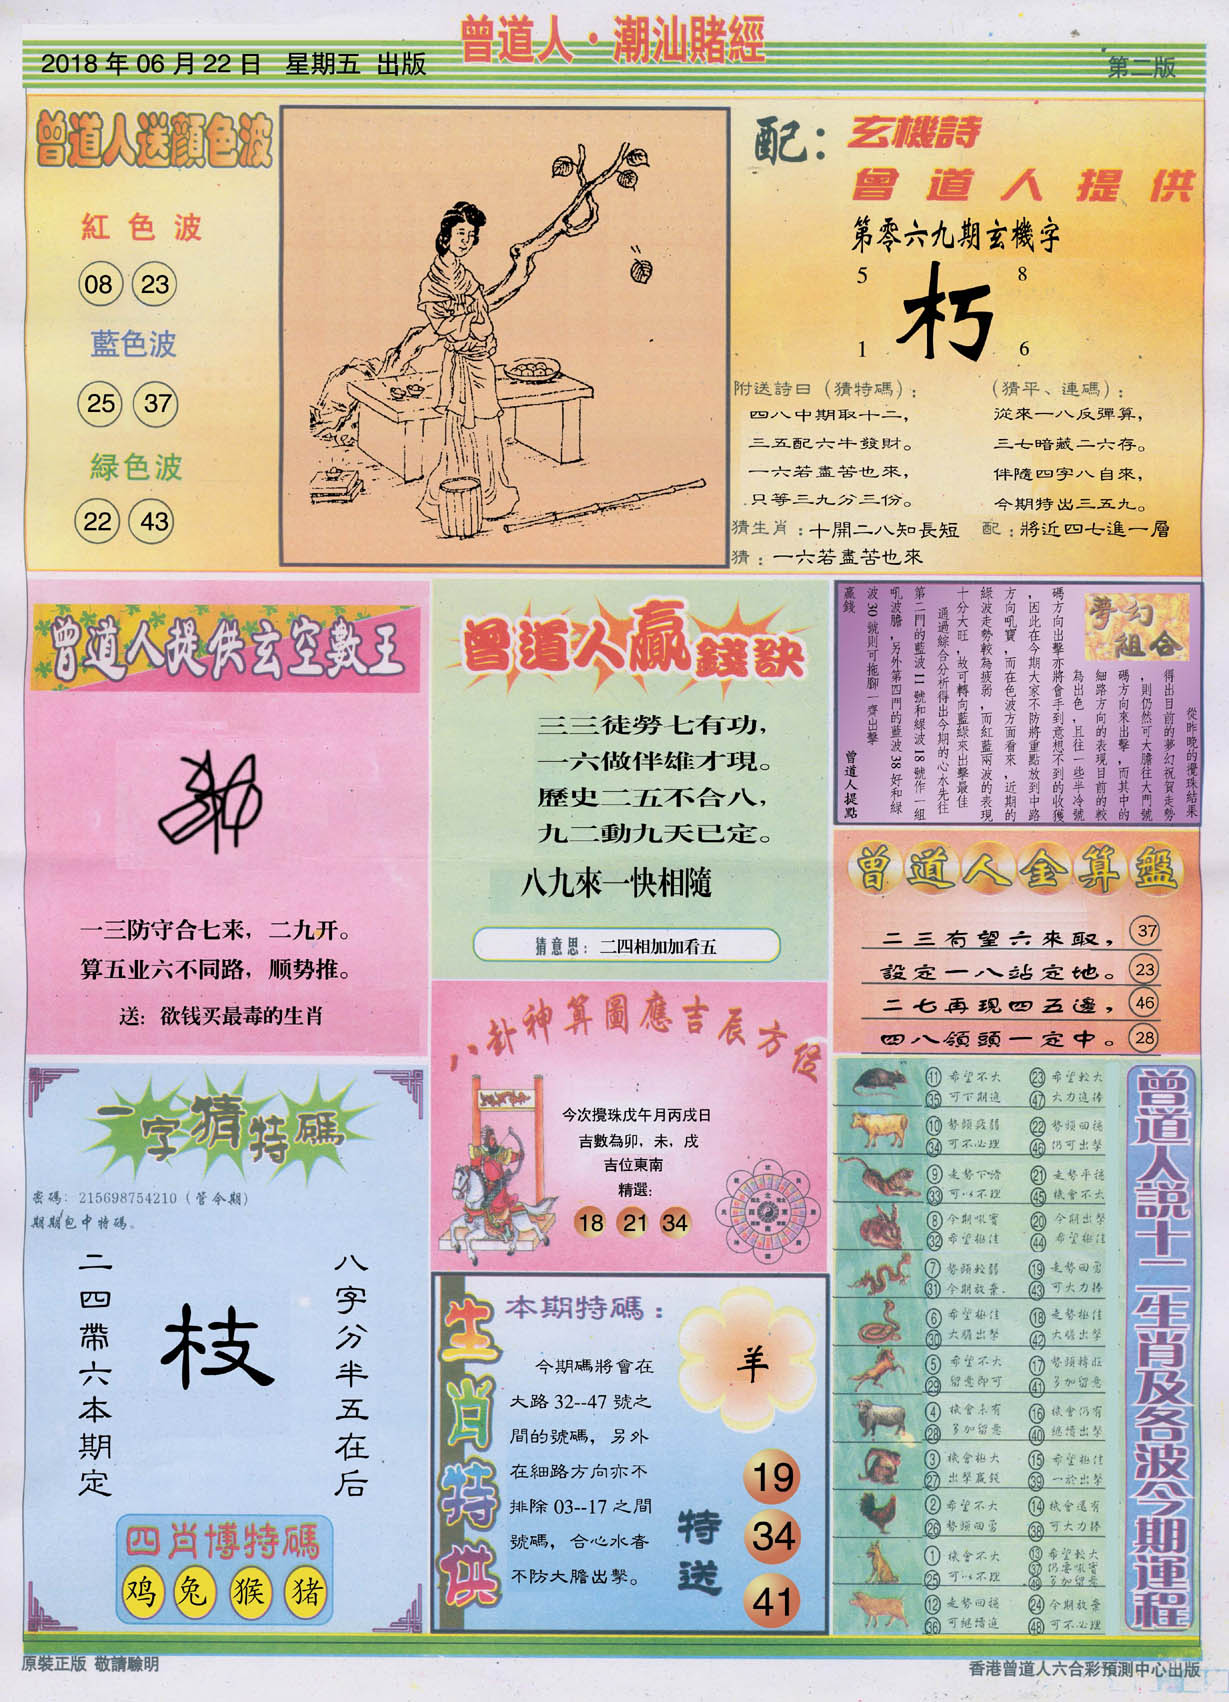 曾道人·潮汕賭經
2018年06月22日 星期五 出版
第二版
曾道人送顏色波
紅色波
08 23
藍色波
25 37
緑色波
22 43
配：
玄機詩
曾道人提供
第零六九期玄機字
5 8
朽
1 6
附送詩曰（猜特碼）：
四八中期取十二，
三五配六牛發財。
一六若盡苦也來，
只等三九分三份。
（猜平、連碼）：
從來一八反彈算，
三七暗藏二六存。
伴隨四字八自來，
今期特出三五九。
猜生肖：十開二八知長短 配：將近四七進一層
猜：一六若盡苦也來
曾道人提供玄空數王
一三防守合七来，二九开。
算五业六不同路，顺势推。
送：欲钱买最毒的生肖
曾道人贏錢訣
三三徒勞七有功，
一六做伴雄才現。
歷史二五不合八，
九二動九天已定。
八九來一快相隨
猜意思：二四相加加看五
夢幻組合
從昨晚的攪珠結果
得出目前的夢幻祝賀走勢
，則仍然可大膽往大門號
碼方向來出擊，而其中的
細路方向的表現目前的較
為出色，且往一些半冷號
碼方向出擊亦將會手到意想不到的收獲
，因此在今期大家不防將重點放到中路
方向吼寶，而在色波方面看來，近期的
綠波走勢較為疲弱，而紅藍兩波的表現
十分大旺，故可轉向藍綠來出擊最佳
通過綜合分析得出今期的心水先往
第二門的藍波11號和緑波18號作一組
吼波膽，另外第四門的藍波38好和綠
波30號則可拖腳一齊出擊
贏錢
曾道人提點
曾道人金算盤
二三有望六來取， 37
設定一八站定地。 23
二七再現四五邊， 46
四八領頭一定中。 28
八卦神算圖應吉辰方位
今次攪珠戊午月丙戌日
吉數為卯，未，戌
吉位東南
精選：
18 21 34
一字猜特碼
密碼：215698754210（管令期）
期期包中特碼。
八字分半五在后
枝
二四帶六本期定
四肖博特碼
鸡 兔 猴 猪
生肖特供
本期特碼：
今期碼將會在
大路32--47號之
間的號碼，另外
在細路方向亦不
排除03--17之間
號碼，合心水者
不防大膽出擊。
羊
特送
19
34
41
曾道人説十二生肖及各波今期運程
11 希望不大 23 希望較大
35 可下期進 47 大力進捧
10 勢頭疲弱 22 勢頭回穩
34 可不必理 46 仍可出擊
9 走勢下滑 21 走勢平穩
33 可以不理 45 機會不大
8 今期吼寶 20 今期出擊
32 希望極佳 44 希望極佳
7 勢頭較弱 19 走勢回勇
31 今期放棄 43 可大力捧
6 希望極佳 18 走勢極佳
30 大膽出擊 42 大膽出擊
5 希望不大 17 勢頭轉旺
29 留意即可 41 多加留意
4 機會未有 16 機會仍有
28 多加留意 40 繼續出擊
3 機會極大 15 希望極佳
27 出擊贏錢 39 一於出擊
2 希望不大 14 機會還有
26 勢頭回勇 38 可大力捧
1 機會不大 13 希望較大
25 可以不理 37 仍要吼寶
49 多加留意
12 走勢回穩 24 今期放棄
36 可繼續進 48 可不必理
原裝正版 敬請驗明
香港曾道人六合彩預測中心出版